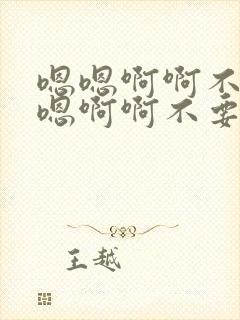 嗯嗯啊啊不
嗯啊啊不要
王越